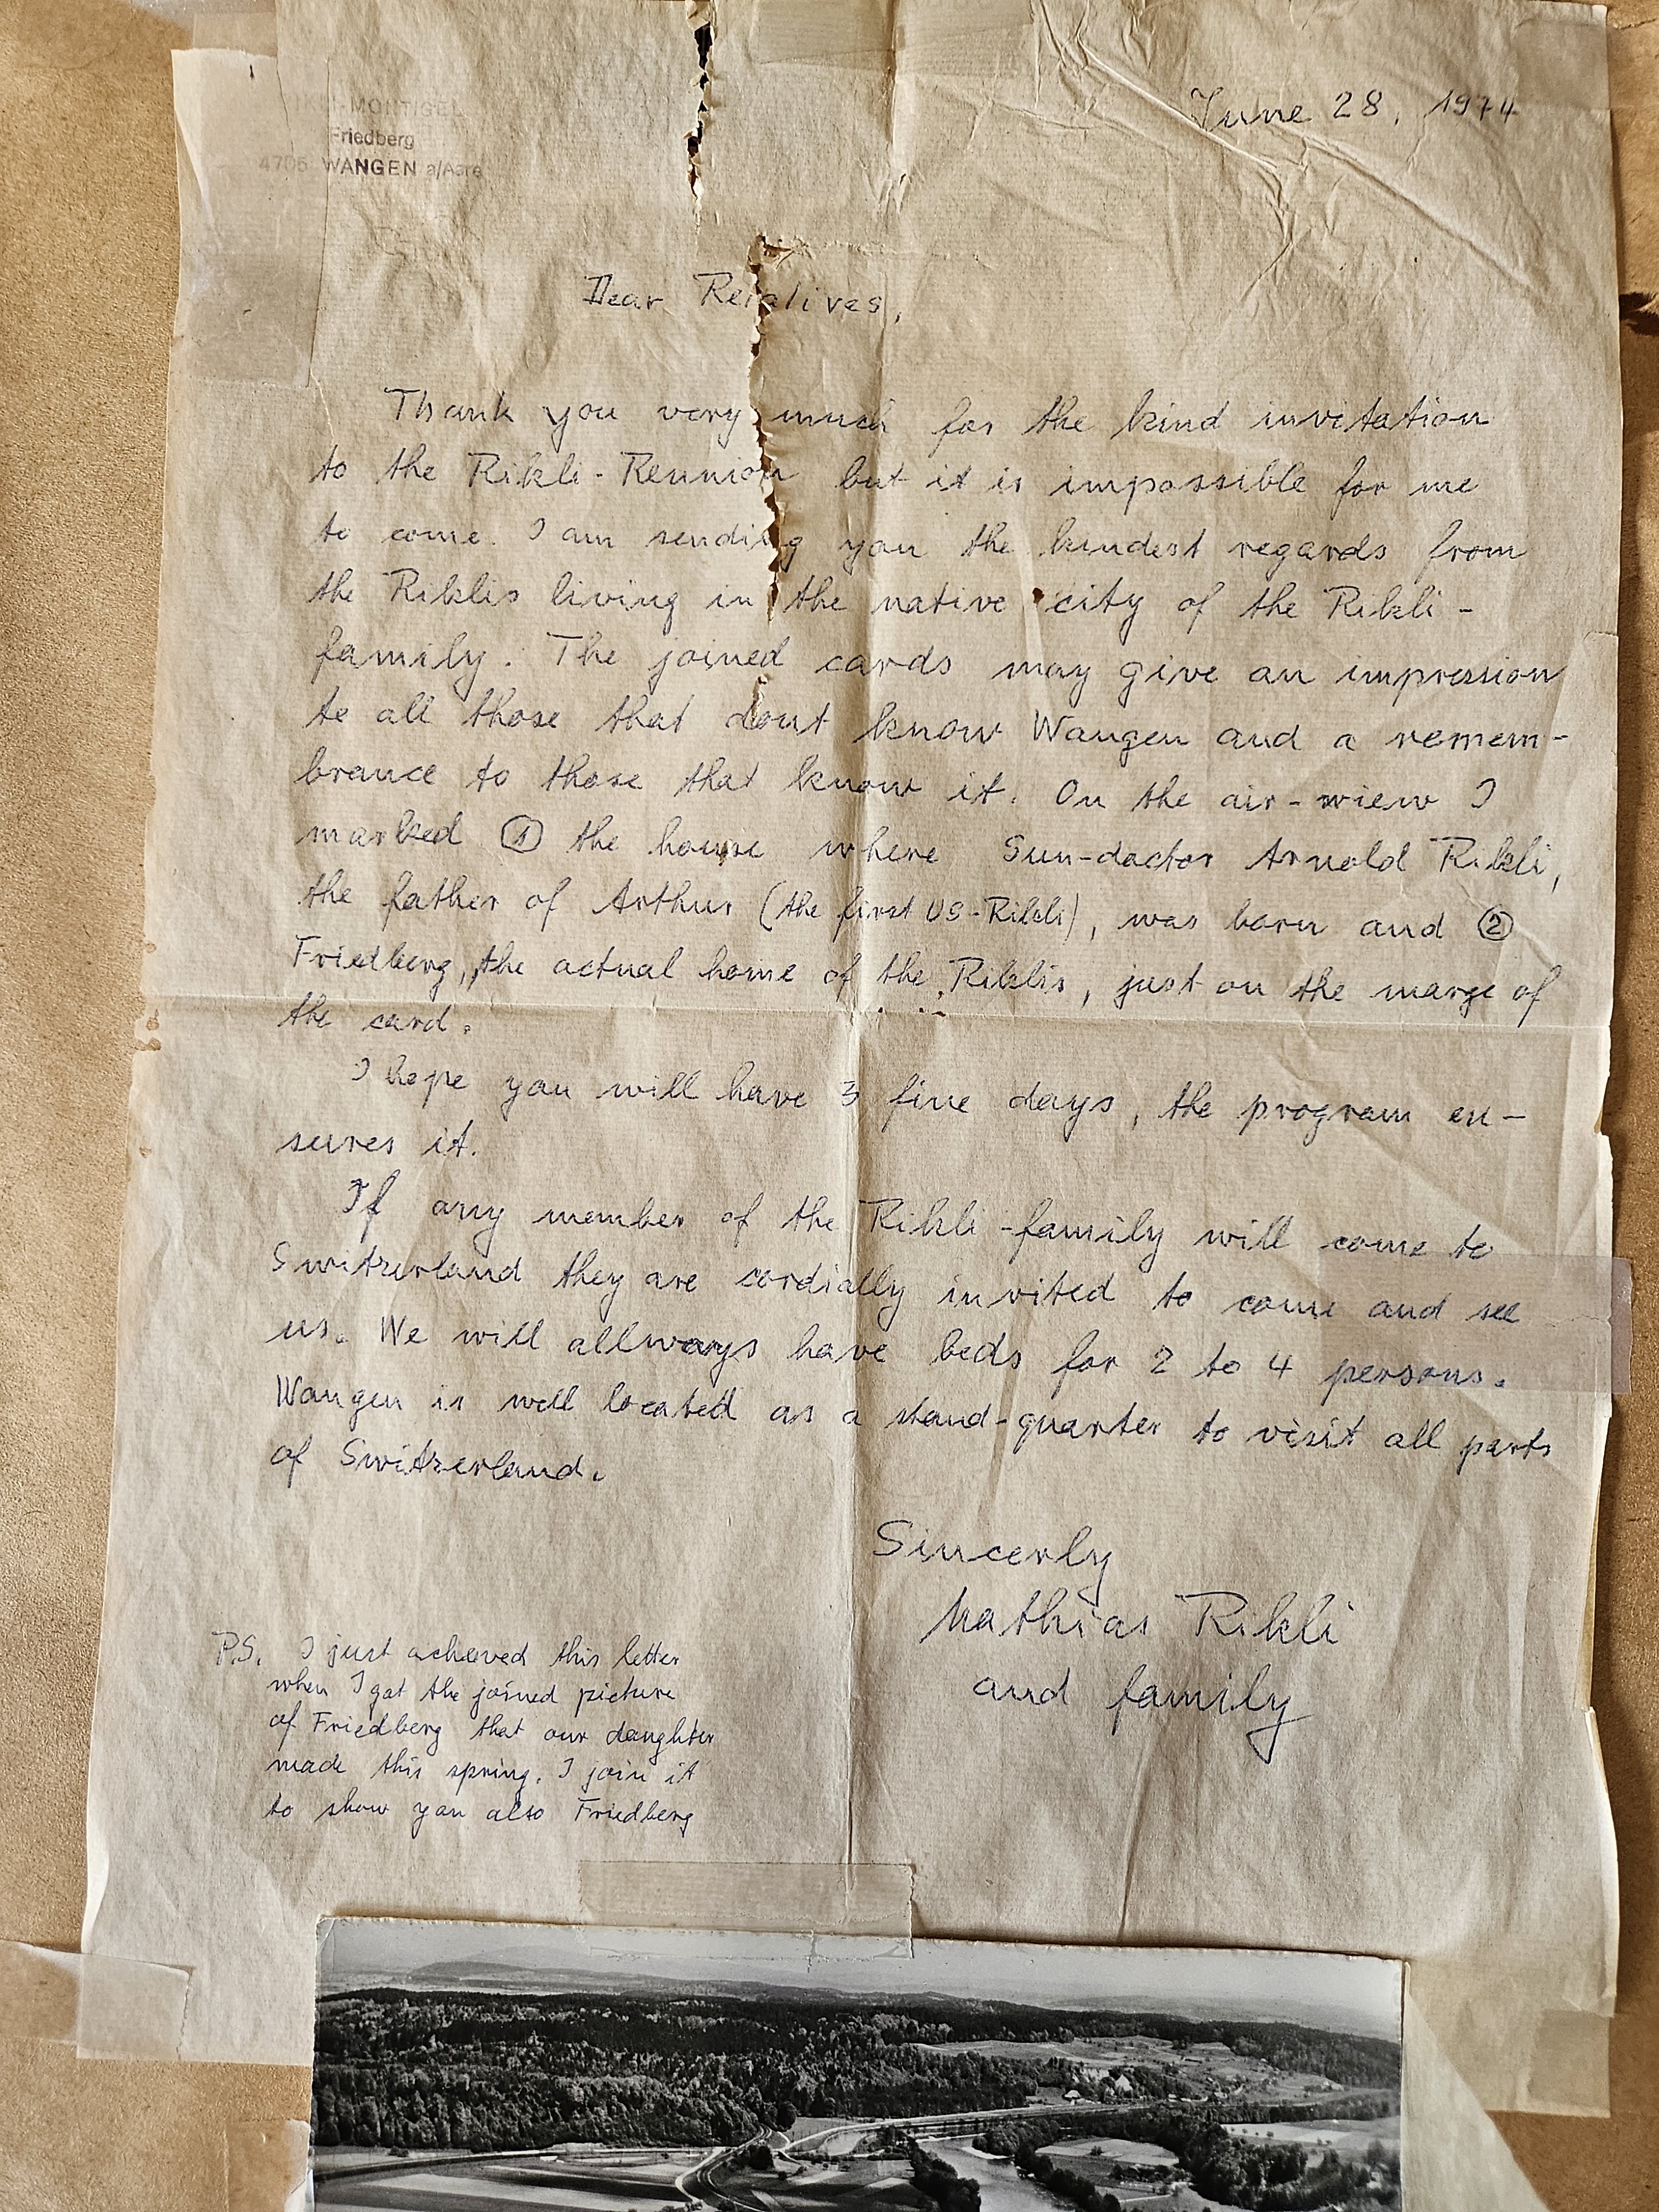 IKLI-MONTIGEL
Friedberg
4705 WANGEN a/Aare
June 28, 1974
Dear Relatives,
Thank you very much for the kind invitation
to the Rikli-Reunion but it is impossible for me
to come. I am sending you the kindest regards from
the Riklis living in the native city of the Rikli-
family. The joined cards may give an impression
to all those that dont know Wangen and a remem-
brance to those that know it. On the air-wiew I
marked ① the house where Sun-doctor Arnold Rikli,
the father of Arthur (the first US-Rikli), was born and ②
Friedberg, the actual home of the Riklis, just on the marge of
the card.
I hope you will have 3 fine days, the program en-
sures it.
If any member of the Rikli-family will come to
Switzerland they are cordially invited to come and see
us. We will allways have beds for 2 to 4 persons.
Wangen is well located as a stand-quarter to visit all parts
of Switzerland.
Sincerly
Mathias Rikli
and family
P.S. I just acheved this letter
when I got the joined picture
of Friedberg that our daughter
made this spring. I join it
to show you also Friedberg